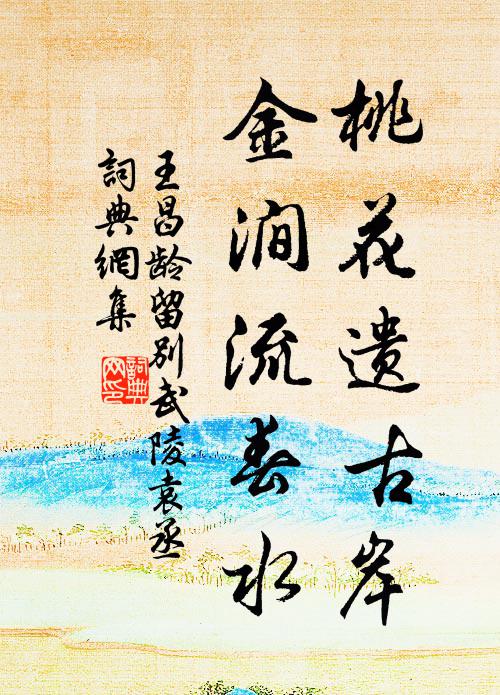 桃花遗古岸
金涧流春水
王昌龄留别武陵袁丞
詞典網集
詞典網印